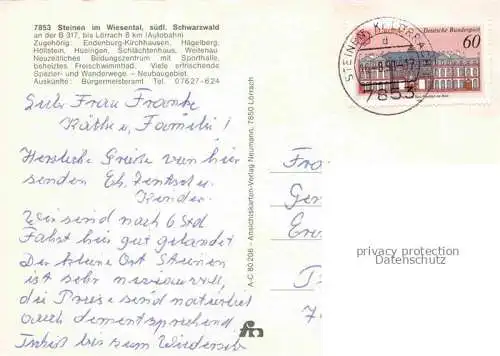 7853 Steinen im Wiesental, südl. Schwarzwald
an der B 317, bis Lörrach 8 km (Autobahn)
Zugehörig: Endenburg-Kirchhausen, Hägelberg,
Höllstein, Hüsingen, Schlächtenhaus, Weitenau
Neuzeitliches Bildungszentrum mit Sporthalle,
beheiztes Freischwimmbad. Viele erfrischende
Spazier- und Wanderwege. – Neubaugebiet
Auskünfte: Bürgermeisteramt Tel. 07627-624
Frau
Käthe u. Familie!
Herzliche Grüße von hier
senden Eh. u.
Kinder.
Wir sind nach 6 Std
Fahrt hier gut gelandet
Der kleine Ort Steinen
ist sehr
die Preise sind natürlich
auch dementsprechend.
bis zum
A-C 80 206 - Ansichtskarten-Verlag Neumann, 7850 Lörrach
Deutsche Bundespost
60
STEINEN, K LÖRRACH
d
7853
privacy protection
Datenschutz